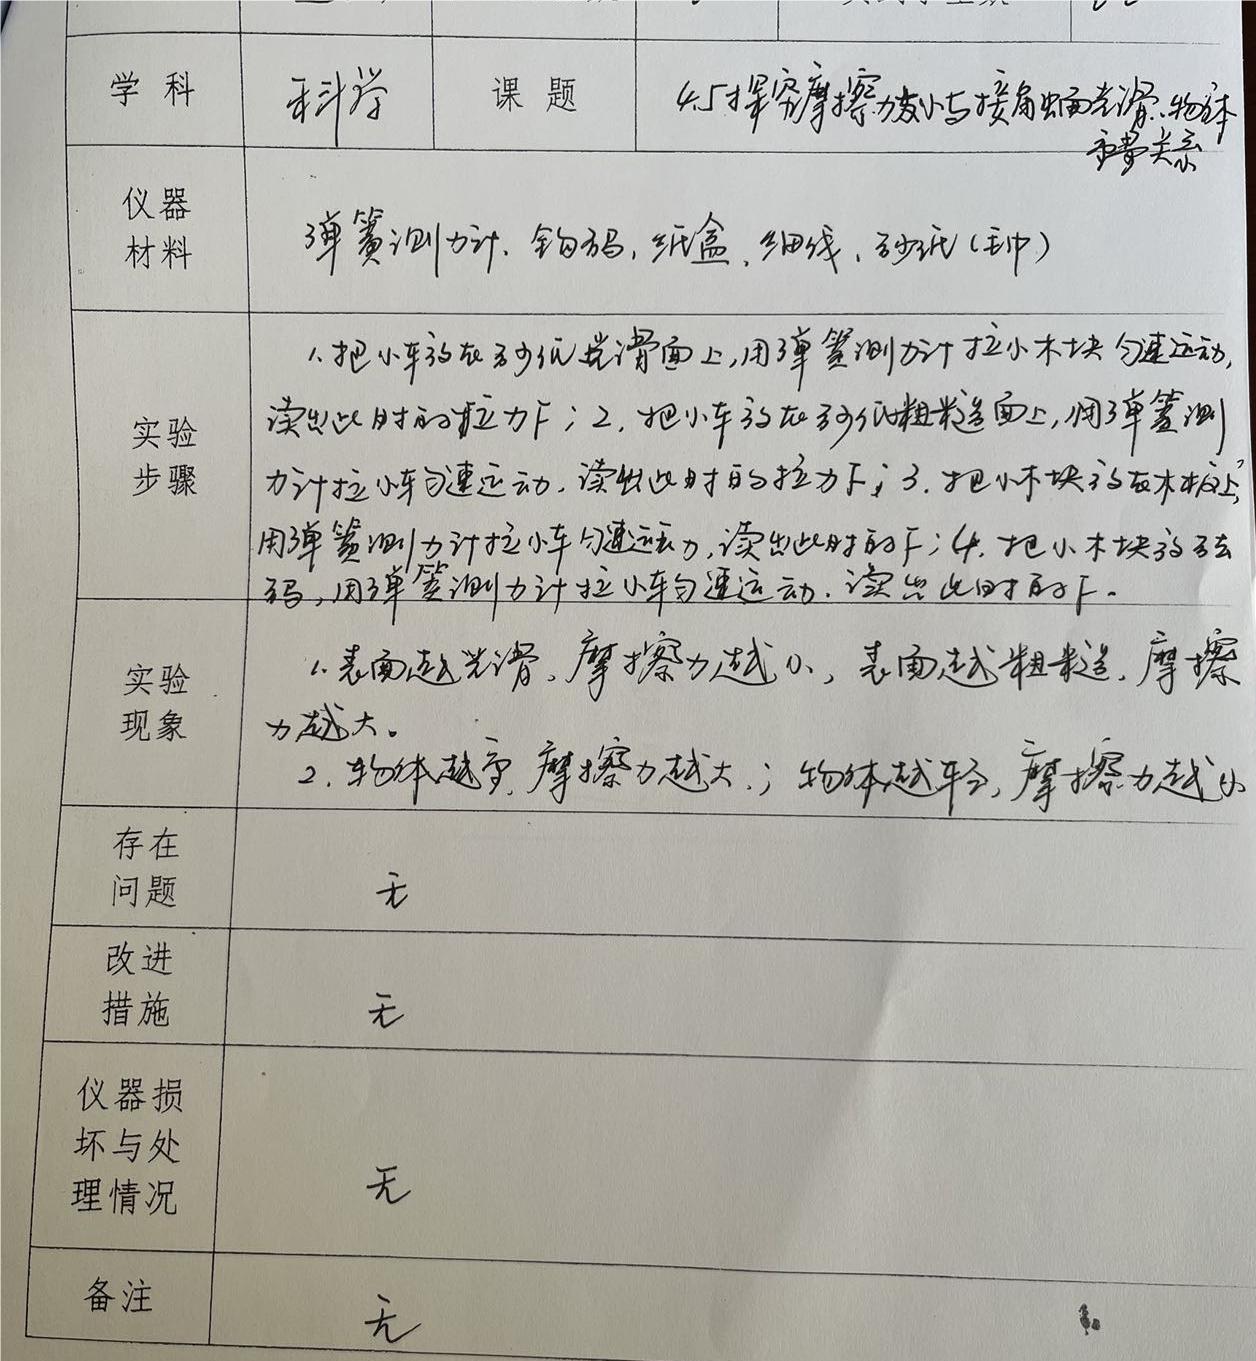 学科 科学 课题 4.5探究摩擦力大小与接触面光滑、物体
重量关系
仪器
材料
弹簧测力计、钩码、纸盒、细线、砂纸(毛巾)
实验
步骤
1、把小车放在砂纸光滑面上,用弹簧测力计拉小木块匀速运动,
读出此时的拉力F；2、把小车放在砂纸粗糙面上,用弹簧测
力计拉小车匀速运动、读出此时的拉力F；3、把小木块放在木板上,
用弹簧测力计拉小车匀速运动,读出此时的F；4、把小木块放砝
码,用弹簧测力计拉小车匀速运动、读出此时的F。
实验
现象
1、表面越光滑、摩擦力越小,表面越粗糙、摩擦
力越大。
2、物体越重、摩擦力越大；物体越轻、摩擦力越小
存在
问题
无
改进
措施
无
仪器损
坏与处
理情况
无
备注
无